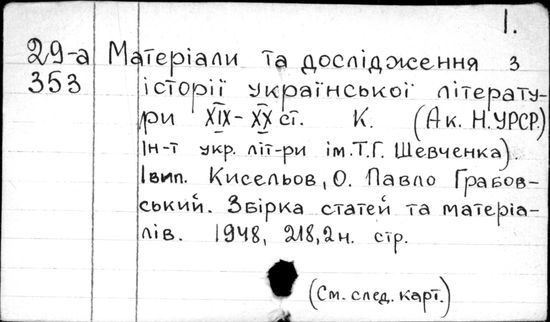 1.
29-а Матеріали та дослідження з
353 історії української літерату-
ри XIX-XX ст. К. (Ак. Н.УРСР.
Ін-т укр. літ-ри ім.Т.Г. Шевченка).
1вип. Кисельов, О. Павло Грабов-
ський. Збірка статей та матеріа-
лів. 1948, 218,2н. стр.
(См. след. карт.)